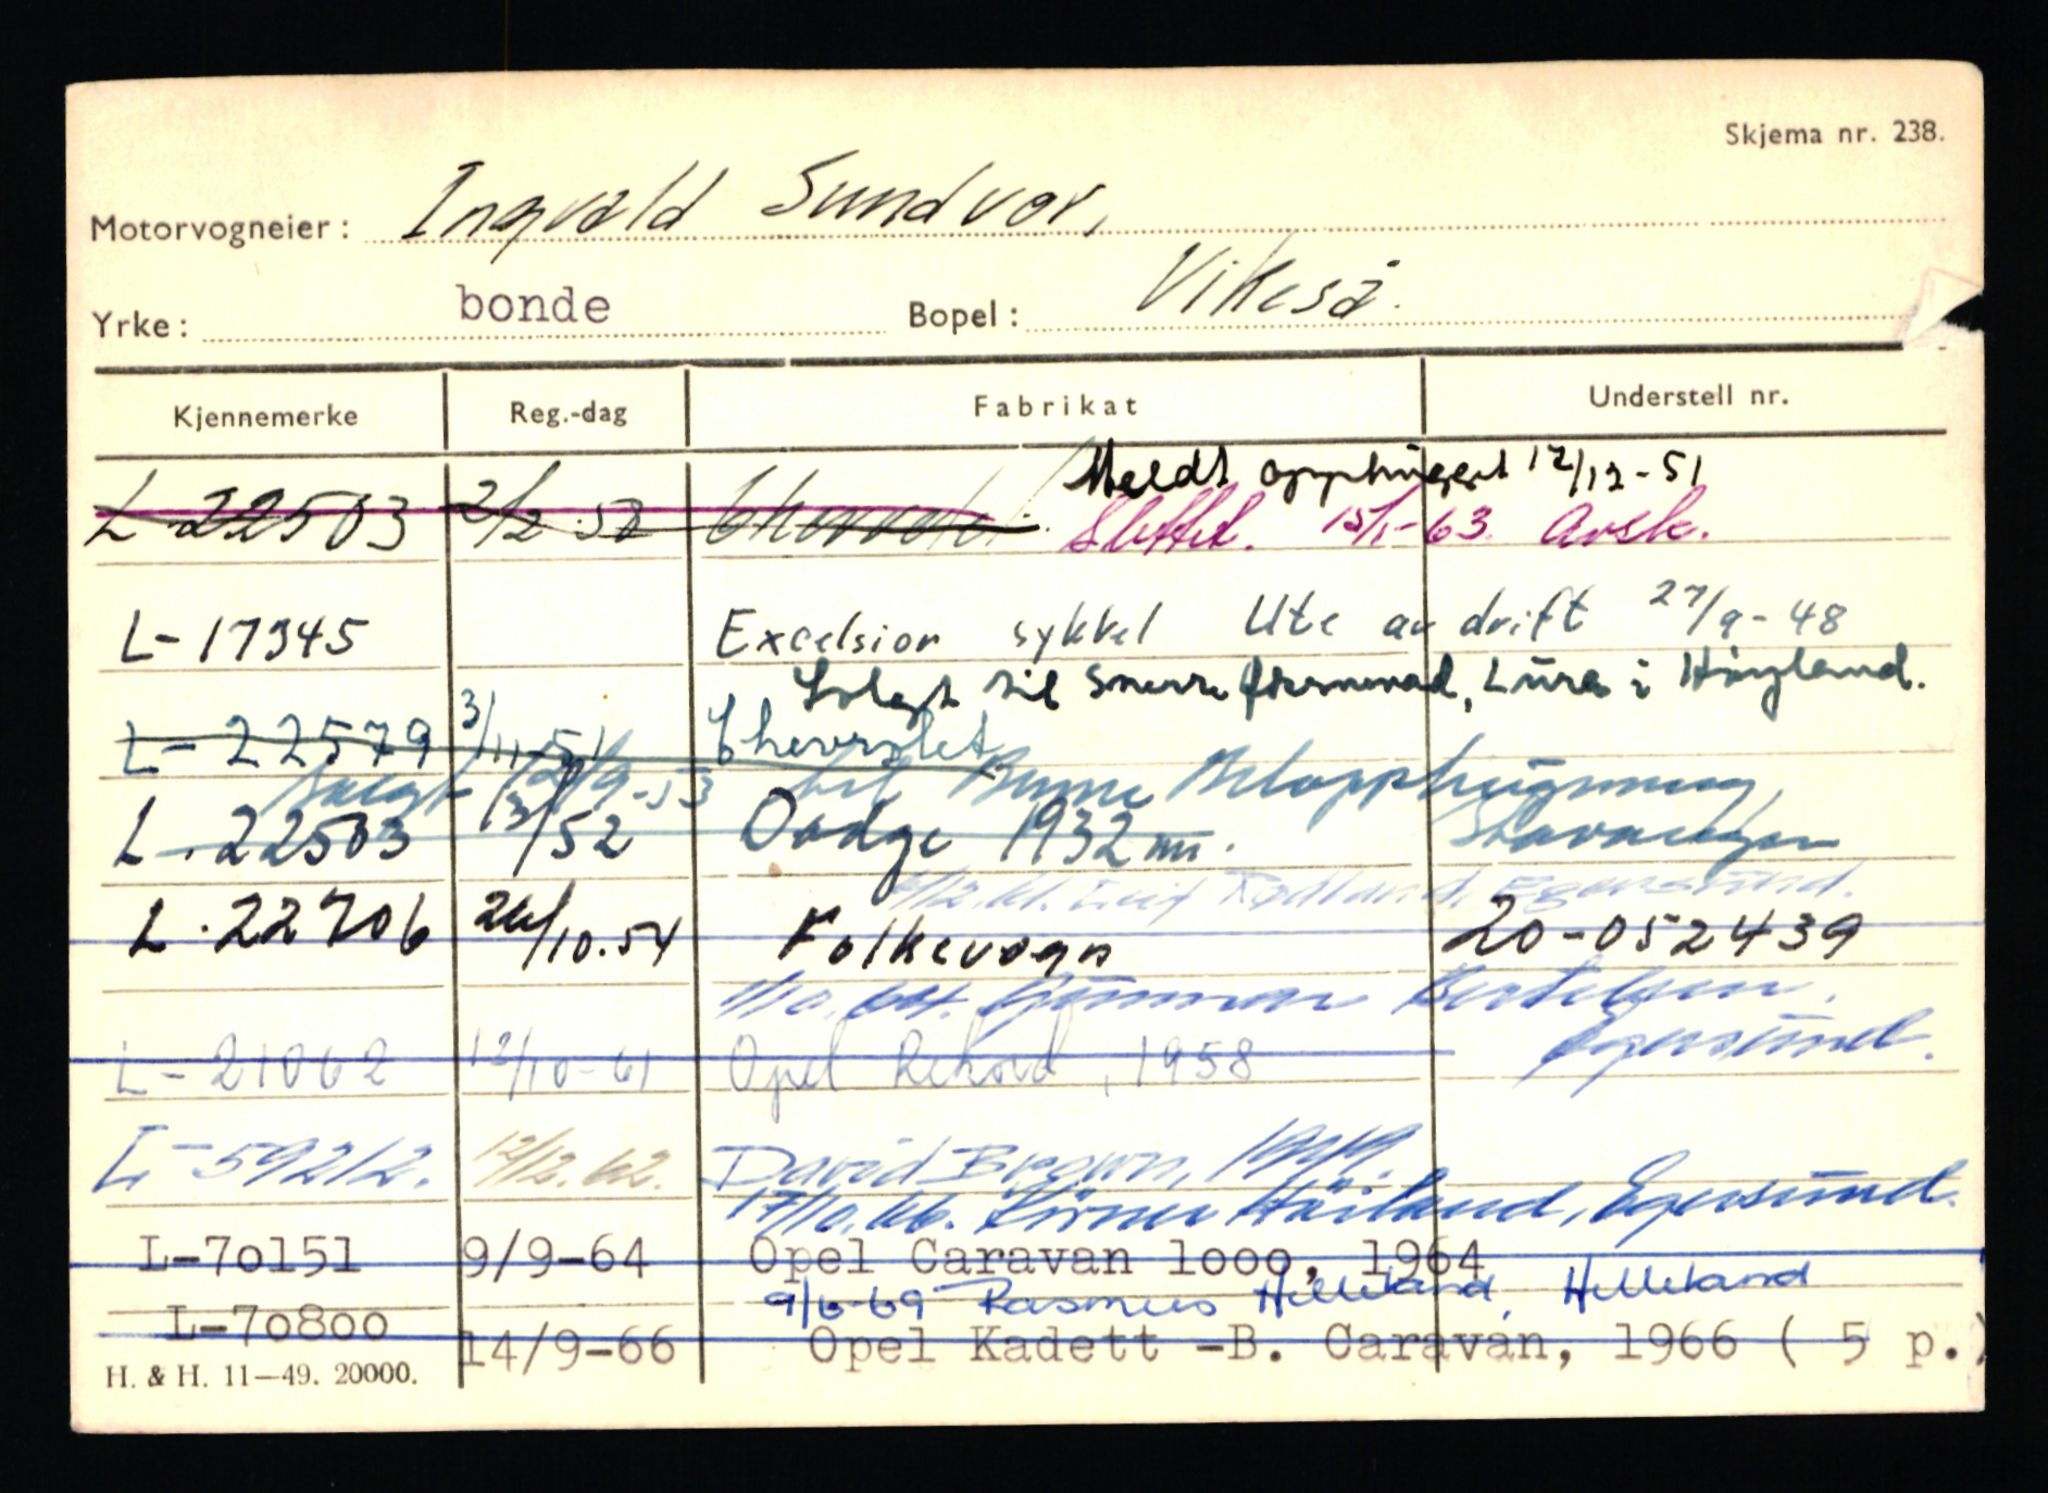 Skjema nr. 238.
Motorvogneier: Ingvald Sundvor,
Yrke: bonde Bopel: Vikeså.
Kjennemerke Reg.-dag Fabrikat Understell nr.
Meldt opphugget 12/12-51
L-22503 2/2 52 Chevrolet. Slettet. 15/1-63. Avsk.
L-17345 Excelsior sykkel Ute av drift 27/9-48
Solgt til Sverre, Lura i Høyland.
L-22579 3/11-51 Chevrolet
Solgt 12/9-53 til Brune Bilopphugning,
L.22503 1/3/52 Dodge 1932 m. Stavanger
/12.61. Leif Rødland, Egersund.
L.22706 26/10.54 Folkevogn 20-052439
1/10.64. Gunnar Bertelsen,
Egersund.
L-21062 12/10-61 Opel Rekord, 1958
L-59212. 12/2.62. David Brown, 1949.
17/10.66. Håiland, Egersund.
L-70151 9/9-64 Opel Caravan 1000, 1964
9/6-69 Rasmus Helleland, Helleland
L-70800 14/9-66 Opel Kadett -B. Caravan, 1966 ( 5 p.)
H. & H. 11—49. 20000.